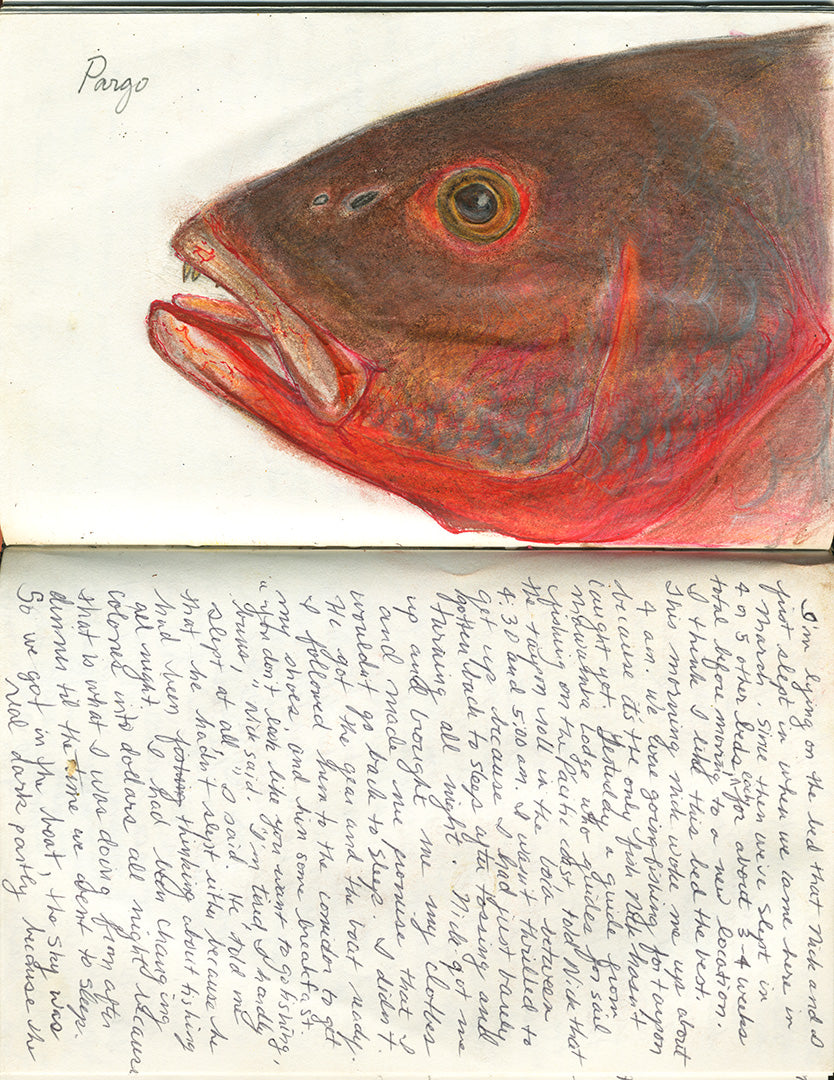 Pargo
I'm lying on the bed that Nick and I
just slept in when we came here in
March. Since then we've slept in
4 or 5 other beds, for about 3-4 weeks
total before moving to a new location.
I think I like this bed the best.
This morning Nick woke me up about
4 am. We were going fishing for tarpon
because it's the only fish Nick hasn't
caught yet. Yesterday a guide from
Lodge who guides for sail
fishing on the Pacific coast told Nick that
the tarpon roll in the between
4:30 and 5:00 am. I wasn't thrilled to
get up because I had just barely
gotten back to sleep after tossing and
turning all night. Nick got me
up and brought me my clothes
and made me promise that I
wouldn't go back to sleep. I didn't.
He got the gear and the boat ready.
I followed him to the comedor to get
my shoes, and him some breakfast.
don't look like you want to go fishing,
Nick said. "I'm tired, I hardly
slept at all," I said. He told me
that he hadn't slept either because he
had been thinking about fishing
all night. I had been changing
colones into dollars all night because
that is what I was doing from after
dinner til the time we went to sleep.
So we got in the boat, the sky was
real dark partly because the